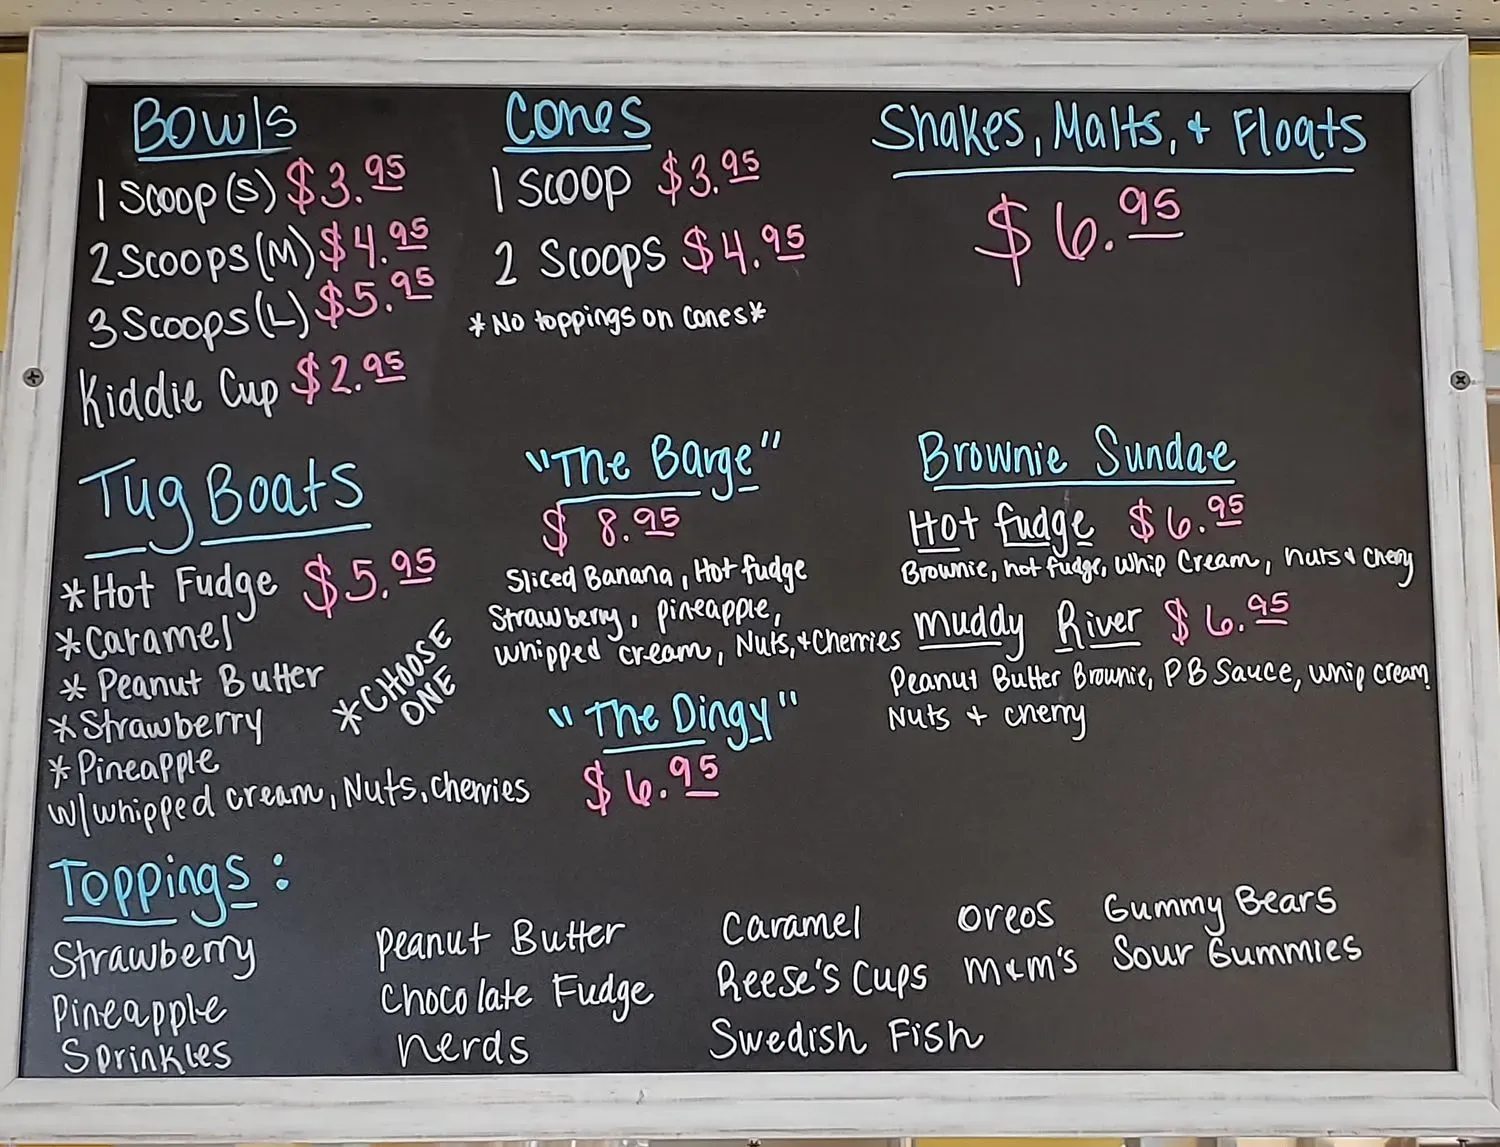 Bowls
1 Scoop (S) $3.95
2 Scoops (M) $4.95
3 Scoops (L) $5.95
Kiddie Cup $2.95
Cones
1 Scoop $3.95
2 Scoops $4.95
*No toppings on cones*
Shakes, Malts, & Floats
$6.95
Tug Boats
*Hot Fudge $5.95
*Caramel
*Peanut Butter
*Strawberry
*Pineapple
*CHOOSE
ONE
w/whipped cream, Nuts, cherries
"The Barge"
$8.95
Sliced Banana, Hot fudge
Strawberry, pineapple,
whipped cream, Nuts, & Cherries
"The Dingy"
$6.95
Brownie Sundae
Hot fudge $6.95
Brownie, hot fudge, whip cream, nuts & cherry
Muddy River $6.95
Peanut Butter Brownie, PB Sauce, whip cream
Nuts & cherry
Toppings:
Strawberry
Pineapple
Sprinkles
Peanut Butter
Chocolate Fudge
nerds
Caramel
Reese's Cups
Swedish Fish
oreos
m&m's
Gummy Bears
Sour Gummies